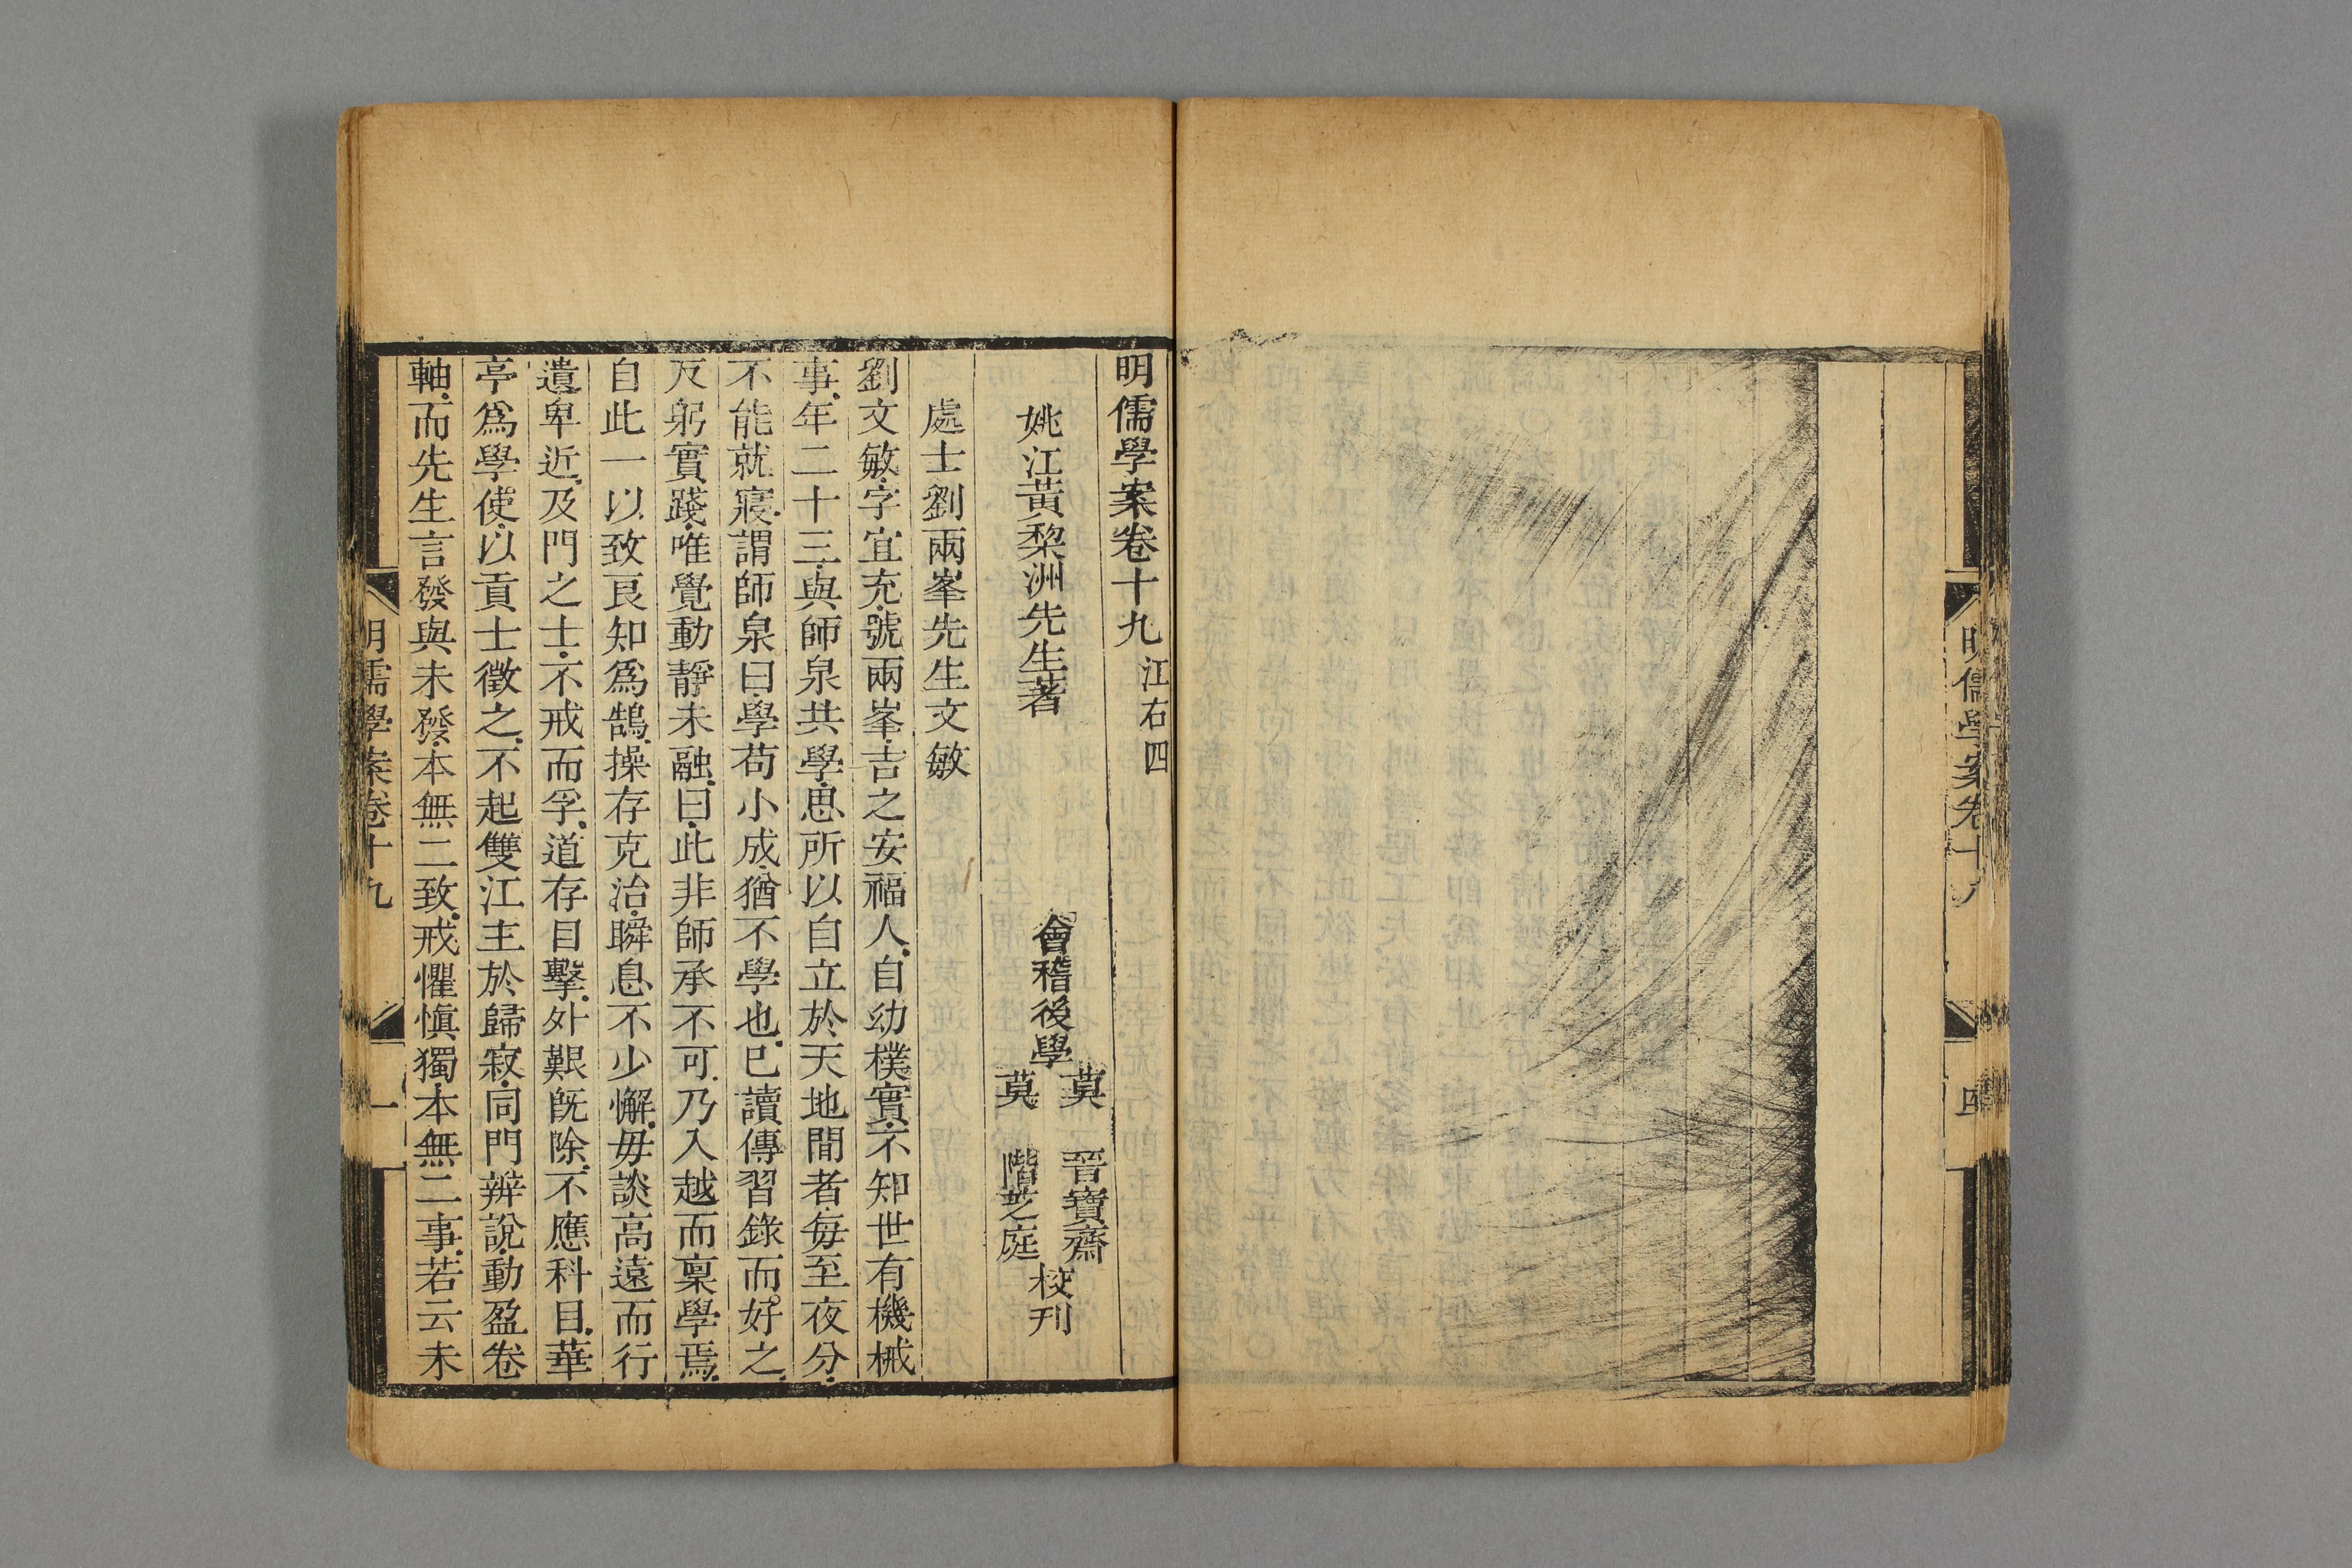 明儒學案卷十八
明儒學案卷十九 江右四
姚江黃棃洲先生著
會稽後學
莫 晉寶齋
莫 階芝庭
校刊
處士劉兩峯先生文敏
劉文敏字宜充號兩峯吉之安福人自幼樸實不知世有機械
事年二十三與師泉共學思所以自立於天地間者每至夜分
不能就寢謂師泉曰學苟小成猶不學也已讀傳習錄而好之
反躬實踐唯覺動靜未融曰此非師承不可乃入越而稟學焉
自此一以致良知爲鵠操存克治瞬息不少懈毋談高遠而行
遺卑近及門之士不戒而孚道存目擊外艱旣除不應科目華
亭爲學使以貢士徵之不起雙江主於歸寂同門辨說動盈卷
軸而先生言發與未發本無二致戒懼愼獨本無二事若云未
明儒學案卷十九
一